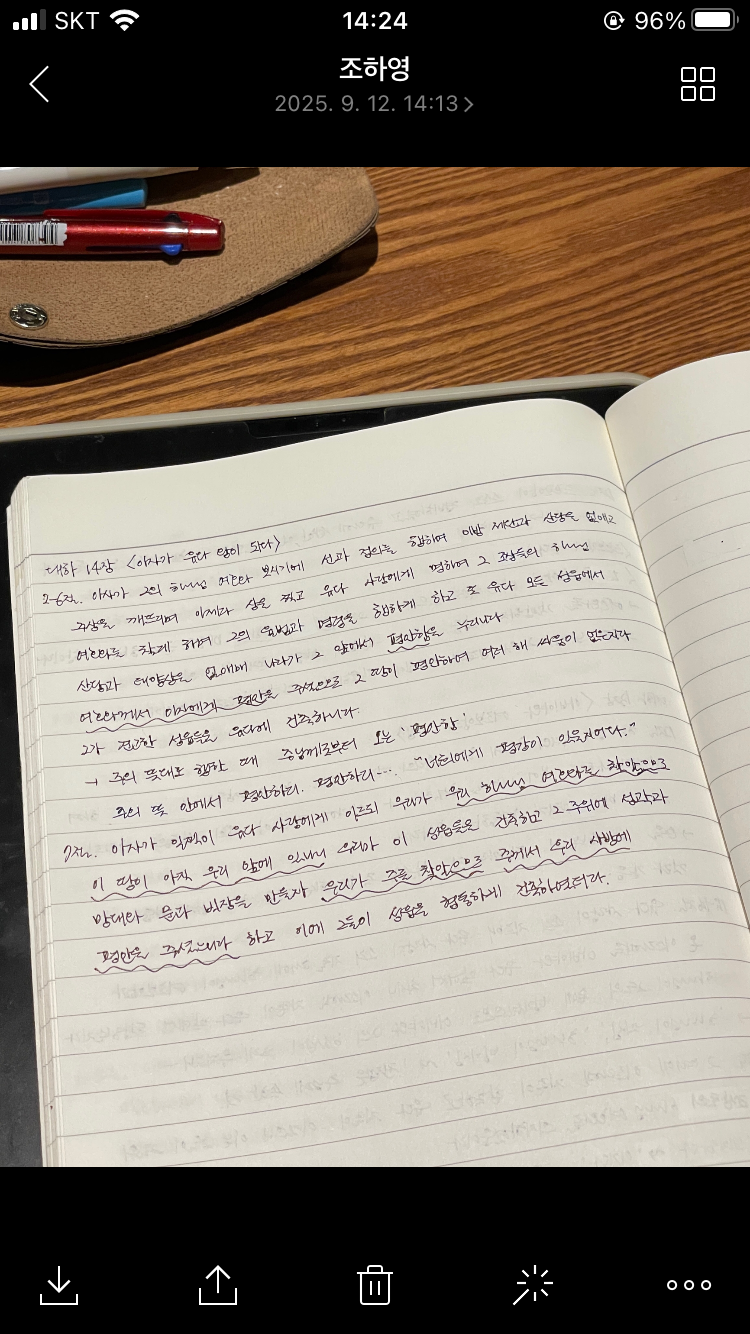 SKT 14:24 96%
조하영
2025. 9. 12. 14:13
대하 14장 <아사가 유다 왕이 되다>
2-6절. 아사가 그의 하나님 여호와 보시기에 선과 정의를 행하여 이방 제단과 산당을 없애고
주상을 깨뜨리며 아세라 상을 찍고 유다 사람에게 명하여 그 조상들의 하나님
여호와를 찾게 하며 그의 율법과 명령을 행하게 하고 또 유다 모든 성읍에서
산당과 태양상을 없애매 나라가 그 앞에서 평안함을 누리니라
여호와께서 아사에게 평안을 주셨으므로 그 땅이 평안하여 여러 해 싸움이 없은지라
그가 견고한 성읍들을 유다에 건축하니라.
→ 주의 뜻대로 행할 때 주님께로부터 오는 '평안함'
주의 뜻 안에서 평안하리. 평안하리... "너희에게 평강이 있을지어다."
7절. 아사가 일찍이 유다 사람에게 이르되 우리가 우리 하나님 여호와를 찾았으므로
이 땅이 아직 우리 앞에 있나니 우리가 이 성읍들을 건축하고 그 주위에 성곽과
망대와 문과 빗장을 만들자 우리가 주를 찾았으므로 주께서 우리 사방에
평안을 주셨느니라 하고 이에 그들이 성읍을 형통하게 건축하였더라.